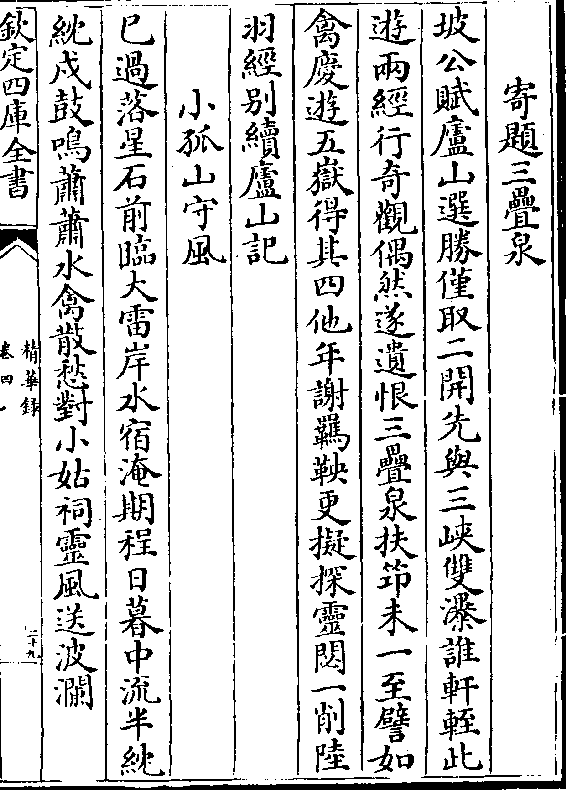 寄題三疊泉
坡公賦廬山選勝僅取二開先與三峽雙瀑誰軒輊此
遊兩經行奇觀偶然遂遺恨三疊泉扶筇未一至譬如
禽慶遊五嶽得其四他年謝羈鞅更擬探靈閟一削陸
羽經别續廬山記
小孤山守風
已過落星石前臨大雷岸水宿淹期程日暮中流半紞
紞戍鼓鳴蕭蕭水禽散愁對小姑祠靈風送波瀾
欽定四庫全書
精華録
卷四
二十九